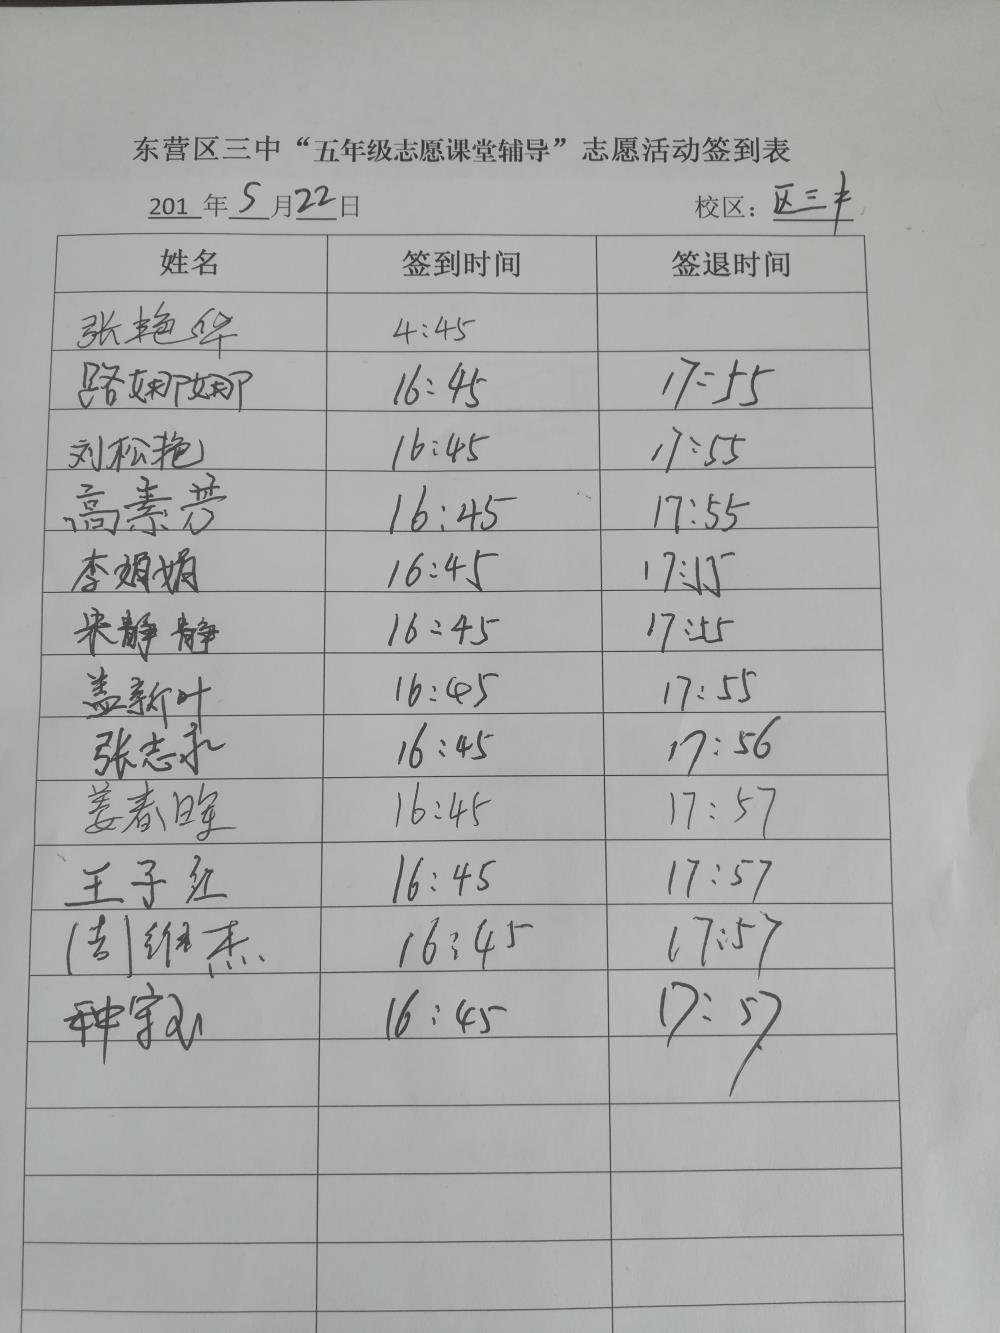 东营区三中“五年级志愿课堂辅导”志愿活动签到表
201 年 5 月 22 日 校区： 区三中
姓名 签到时间 签退时间
张艳华 4:45
路娜娜 16:45 17:55
刘松艳 16:45 17:55
高素芳 16:45 17:55
李娟娟 16:45 17:55
宋静静 16:45 17:55
盖新叶 16:45 17:55
张志永 16:45 17:56
姜春晖 16:45 17:57
王子红 16:45 17:57
维杰 16:45 17:57
种 16:45 17:57